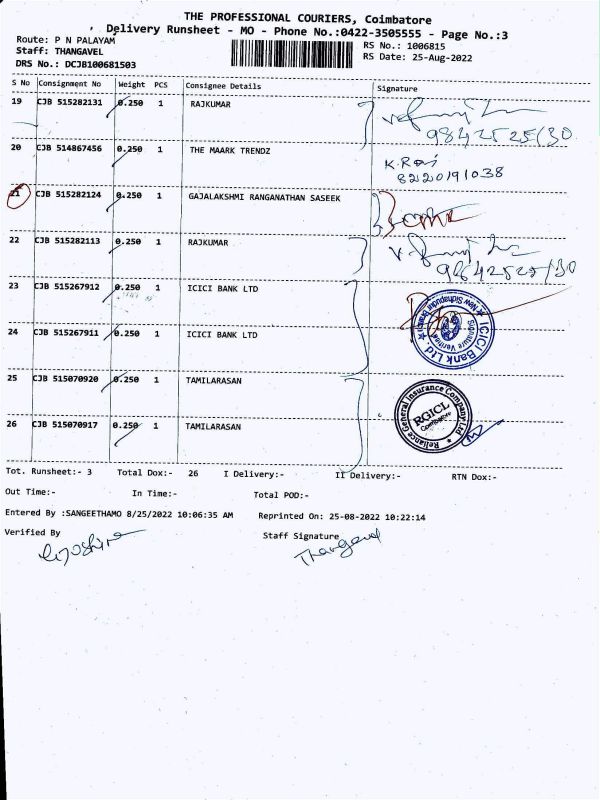 THE PROFESSIONAL COURIERS, Coimbatore
Delivery Runsheet - MO - Phone No.:0422-3505555 - Page No.:3
Route: P N PALAYAM
Staff: THANGAVEL
DRS No.: DCJB100681503
RS No.: 1006815
RS Date: 25-Aug-2022
S No Consignment No Weight PCS Consignee Details Signature
19 CJB 515282131 0.250 1 RAJKUMAR
20 CJB 514867456 0.250 1 THE MAARK TRENDZ
K.Ravi
8220191038
21 CJB 515282124 0.250 1 GAJALAKSHMI RANGANATHAN SASEEK
22 CJB 515282113 0.250 1 RAJKUMAR
23 CJB 515267912 0.250 1 ICICI BANK LTD
24 CJB 515267911 0.250 1 ICICI BANK LTD
ICICI Bank Ltd
Signature Verified
25 CJB 515070920 0.250 1 TAMILARASAN
26 CJB 515070917 0.250 1 TAMILARASAN
Reliance General Insurance Company Ltd
RGICL
Coimbatore
Tot. Runsheet:- 3 Total Dox:- 26 I Delivery:- II Delivery:- RTN Dox:-
Out Time:- In Time:- Total POD:-
Entered By :SANGEETHAMO 8/25/2022 10:06:35 AM Reprinted On: 25-08-2022 10:22:14
Verified By Staff Signature
Thangavel